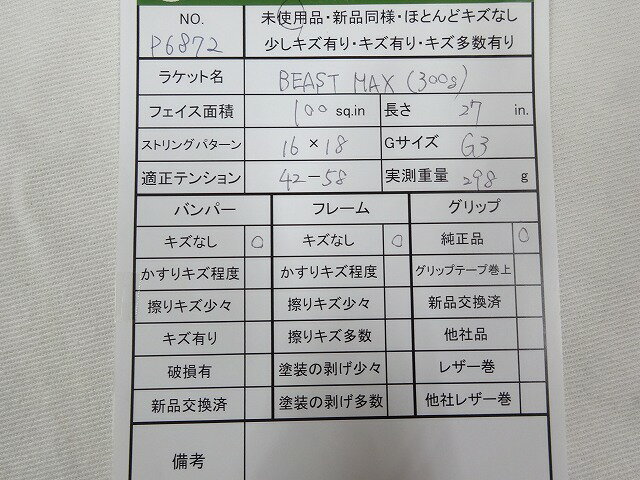 NO. 未使用品・新品同様・ほとんどキズなし
P6872 少しキズ有り・キズ有り・キズ多数有り
ラケット名 BEAST MAX (300g)
フェイス面積 100 sq.in 長さ 27 in.
ストリングパターン 16×18 Gサイズ G3
適正テンション 42-58 実測重量 298 g
バンパー フレーム グリップ
キズなし ○ キズなし ○ 純正品 ○
かすりキズ程度 かすりキズ程度 グリップテープ巻上
擦りキズ少々 擦りキズ少々 新品交換済
キズ有り 擦りキズ多数 他社品
破損有 塗装の剥げ少々 レザー巻
新品交換済 塗装の剥げ多数 他社レザー巻
備考